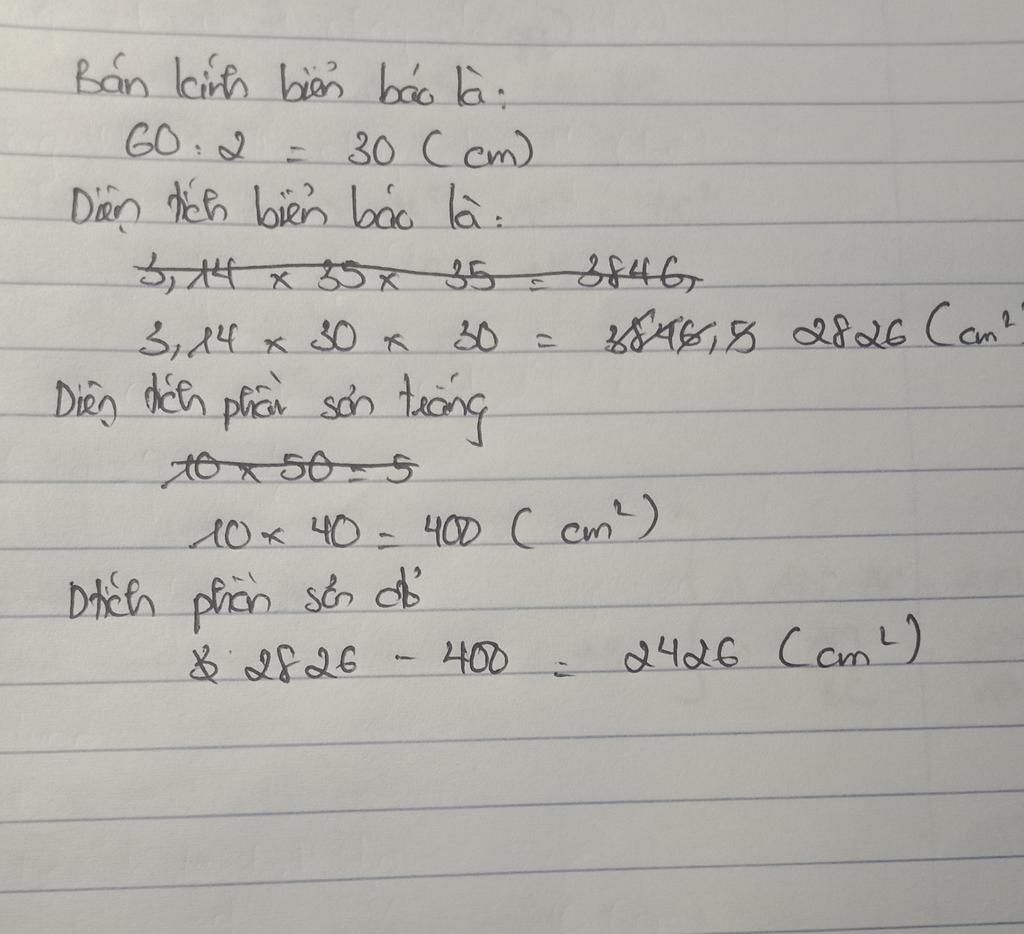 Bán kính biển báo là:
60 : 2 = 30 (cm)
Diện tích biển báo là:
3,14 x 35 x 35 = 3846,
3,14 x 30 x 30 = 3846,5 2826 (cm²)
Diện tích phần sơn trắng
10 x 50 = 5
10 x 40 = 400 (cm²)
Dtích phần sơn đỏ
2826 - 400 = 2426 (cm²)